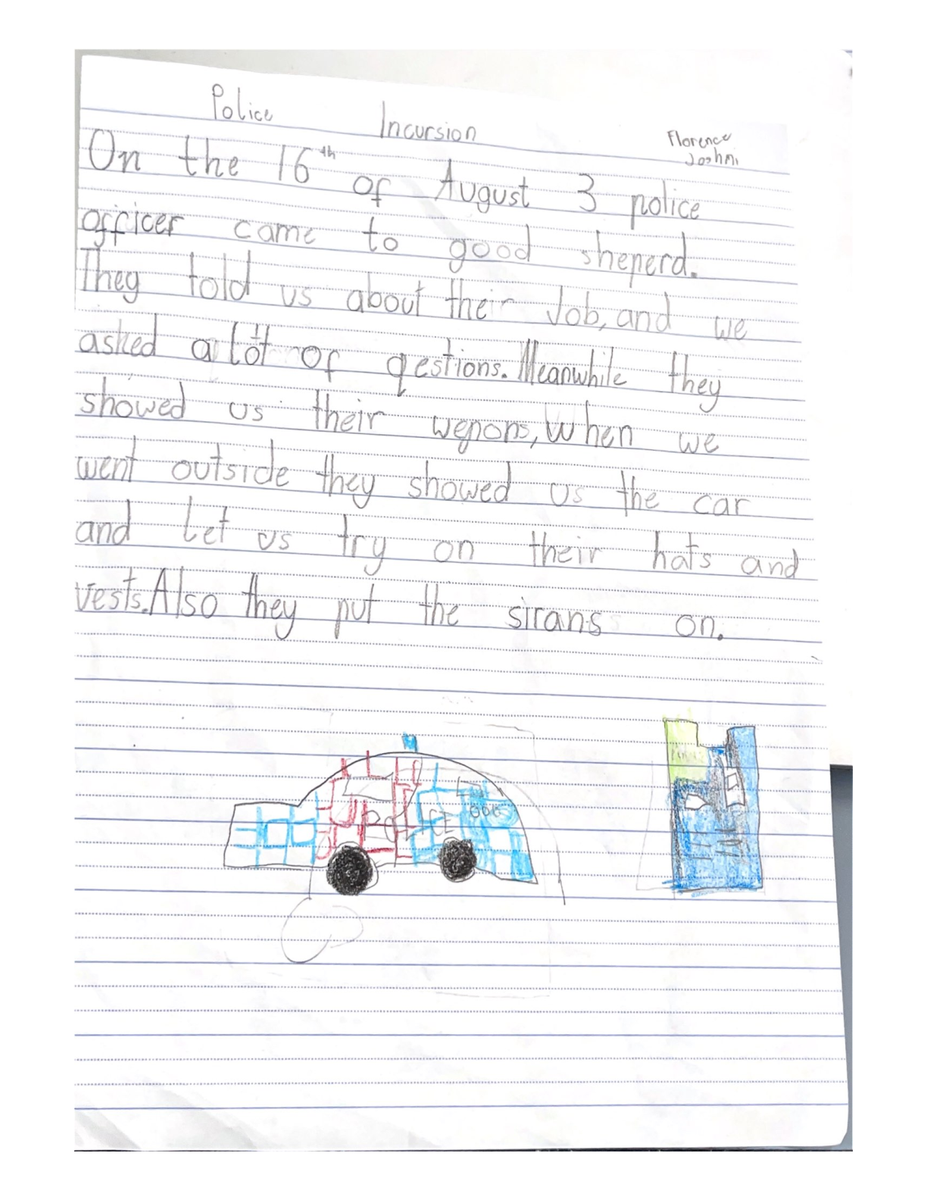 Police Incursion
Florence
On the 16th of August 3 police
officer came to good sheperd.
They told us about their Job, and we
asked a lot of qestions. Meanwhile they
showed us their wepons, When we
went outside they showed us the car
and let us try on their hats and
vests. Also they put the sirans on.
POLICE